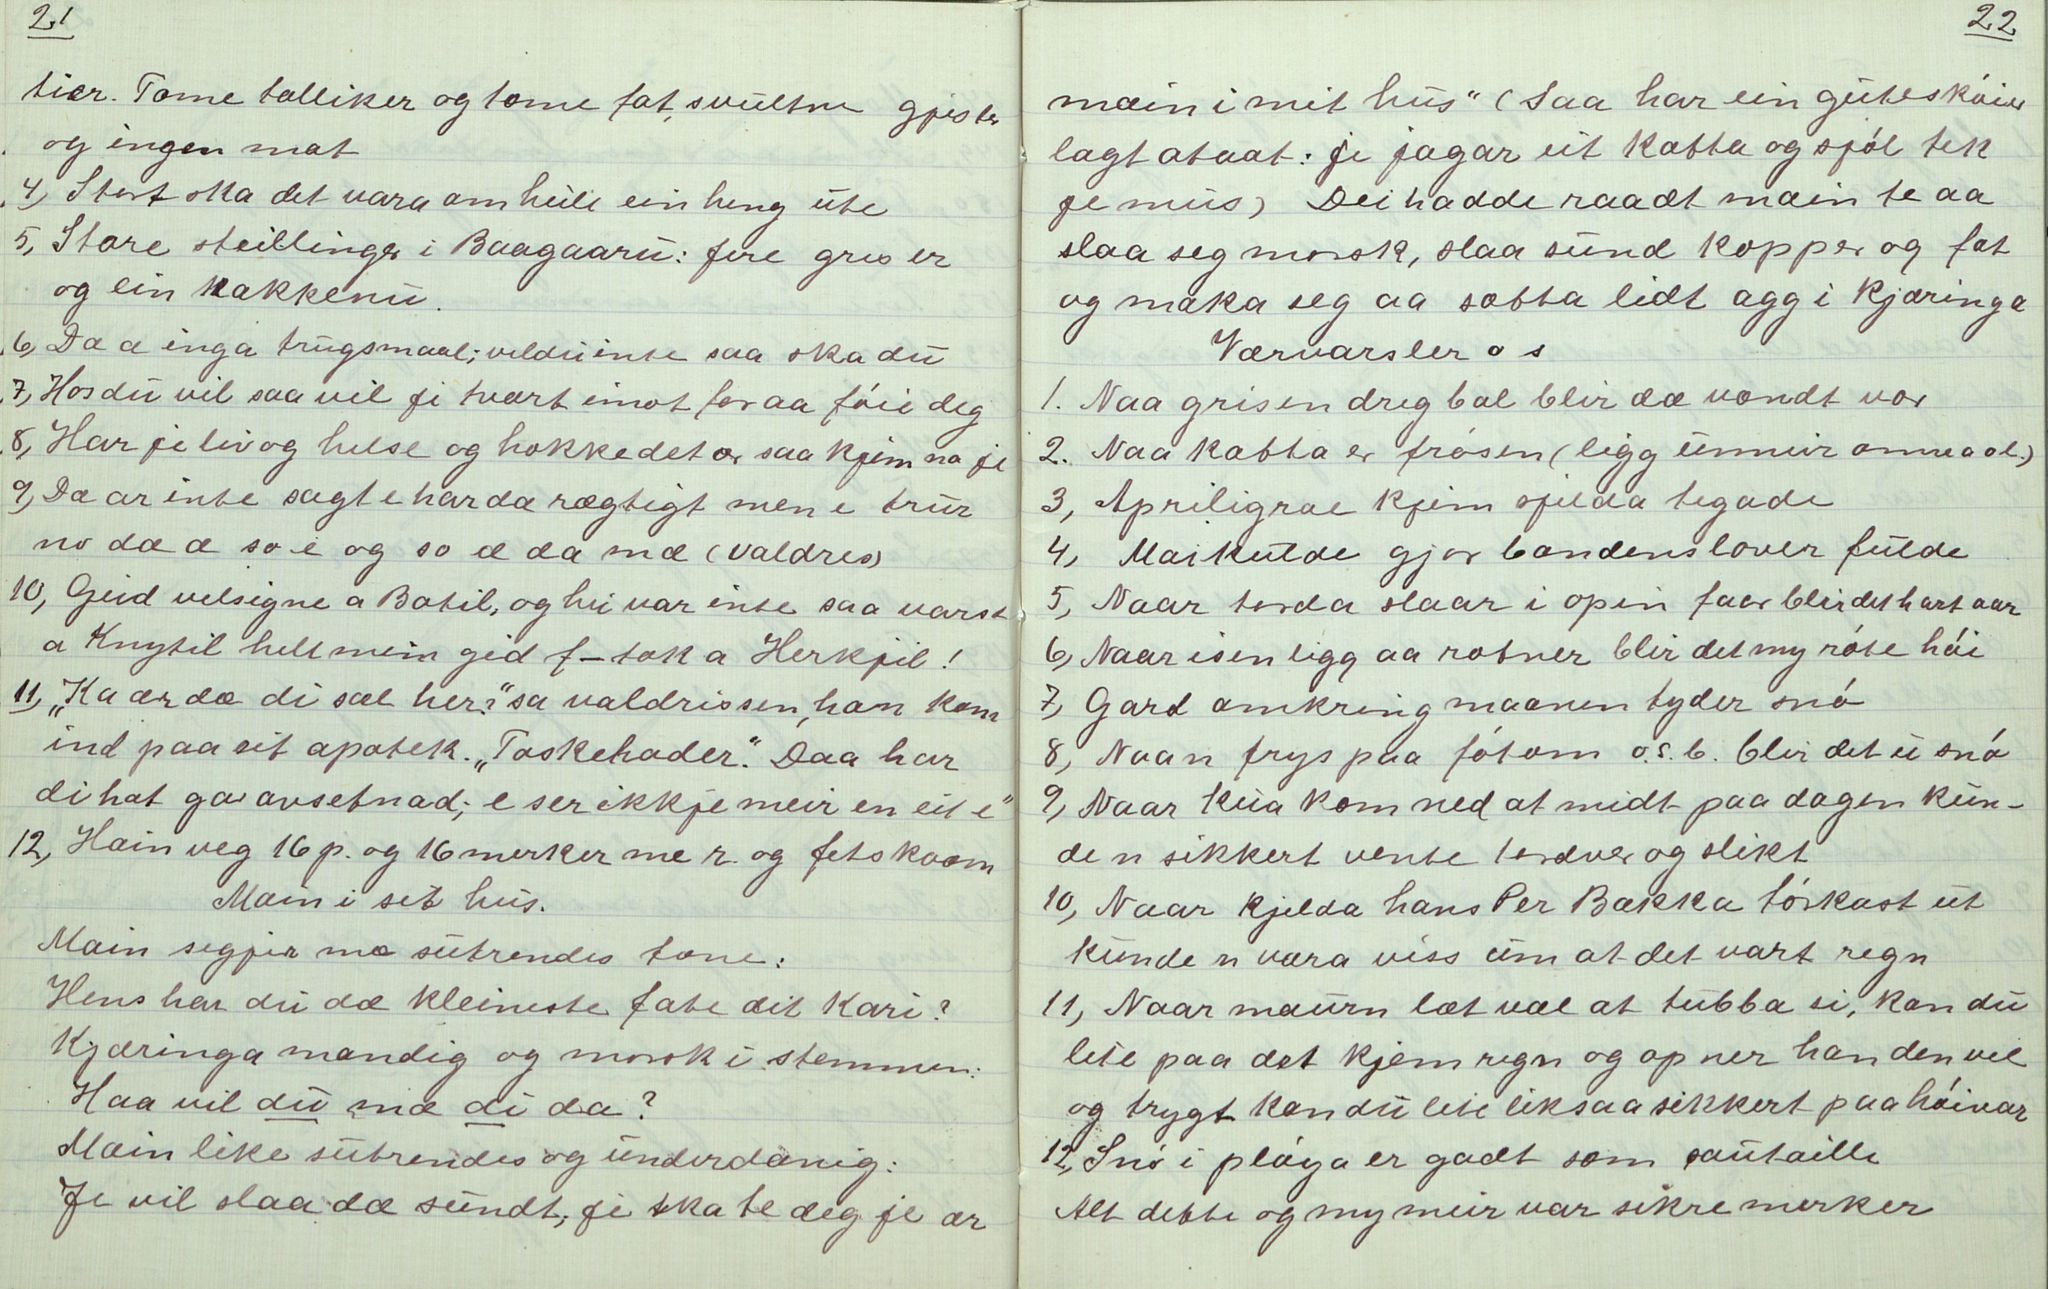 21
tier. Tome talliker og tome fat, svultne gjester
og ingen mat
4, Stort ska det vara om heile ein heng ute
5, Store steillinger i Baagaaru: fire griser
og ein kakkenu.
6, Dæ æ inga trugsmaal; vil du inte saa ska du
7, Hos du vil saa vil je tvært imot for aa föie deg
8, Har je liv og helse og hokke det ær saa kjem na je
9, Dæ ær inte sagt e har dæ rægtigt men e trur
no dæ æ so e og so æ da mæ (Valdres)
10, Geid velsigne a Botil, og hu var inte saa varst
a Knytil helt mein gid f—tok a Herkjil!
11, „Ka ær dæ di sæl her?" sa valdrissen, han kom
ind paa eit apotek. „Toskehoder". Daa har
di hat gæv avsetnad; e ser ikkje meir en eit e"
12, Hain veg 16 p. og 16 merker me r. og fetskoom
Main i sit hus.
Main segjer mæ sutrendes tone:
Hens har du dæ kleineste fate dit Kari?
Kjæringa mandig og morsk i stemmen:
Haa vil du mæ di da?
Main like sutrendes og underdanig:
Je vil slaa dæ sundt, je ska te deg je ær
22
main i mit hus" (Saa har ein guteskóier
lagt ataat: je jagar ut katta og sjól tek
je mus) Dei hadde raadt main te aa
slaa seg morsk, slaa sund kopper og fat
og maka seg aa sætta lidt agg i kjæringa
Værvarsler o s
1. Naa grisen dreg bol blir dæ vondt vær
2. Naa katta er frósen (ligg unneir omnen ol.)
3, Apriligrae kjem sjelda tegade
4, Maikulde gjør bondens lover fulde
5, Naar torda slaar i open faar blir det hart aar
6, Naar isen ligg aa rotner blir det my róte hói
7, Gard omkring maanen tyder snó
8, Naa n frys paa fótom o.s.b. blir det u snó
9, Naar kua kom ned at midt paa dagen kun-
de n sikkert vente tordver og slikt
10, Naar kjelda hans Per Bakka tórkast ut
kunde n vara viss um at det vart regn
11, Naar maurn læt væl at tubba si, kan du
lite paa det kjem regn og opner han den vel
og trygt kan du lite liksaa sikkert paa hóivær
12, Snó i plóya er godt som sautaille
Alt dette og my meir var sikre merker